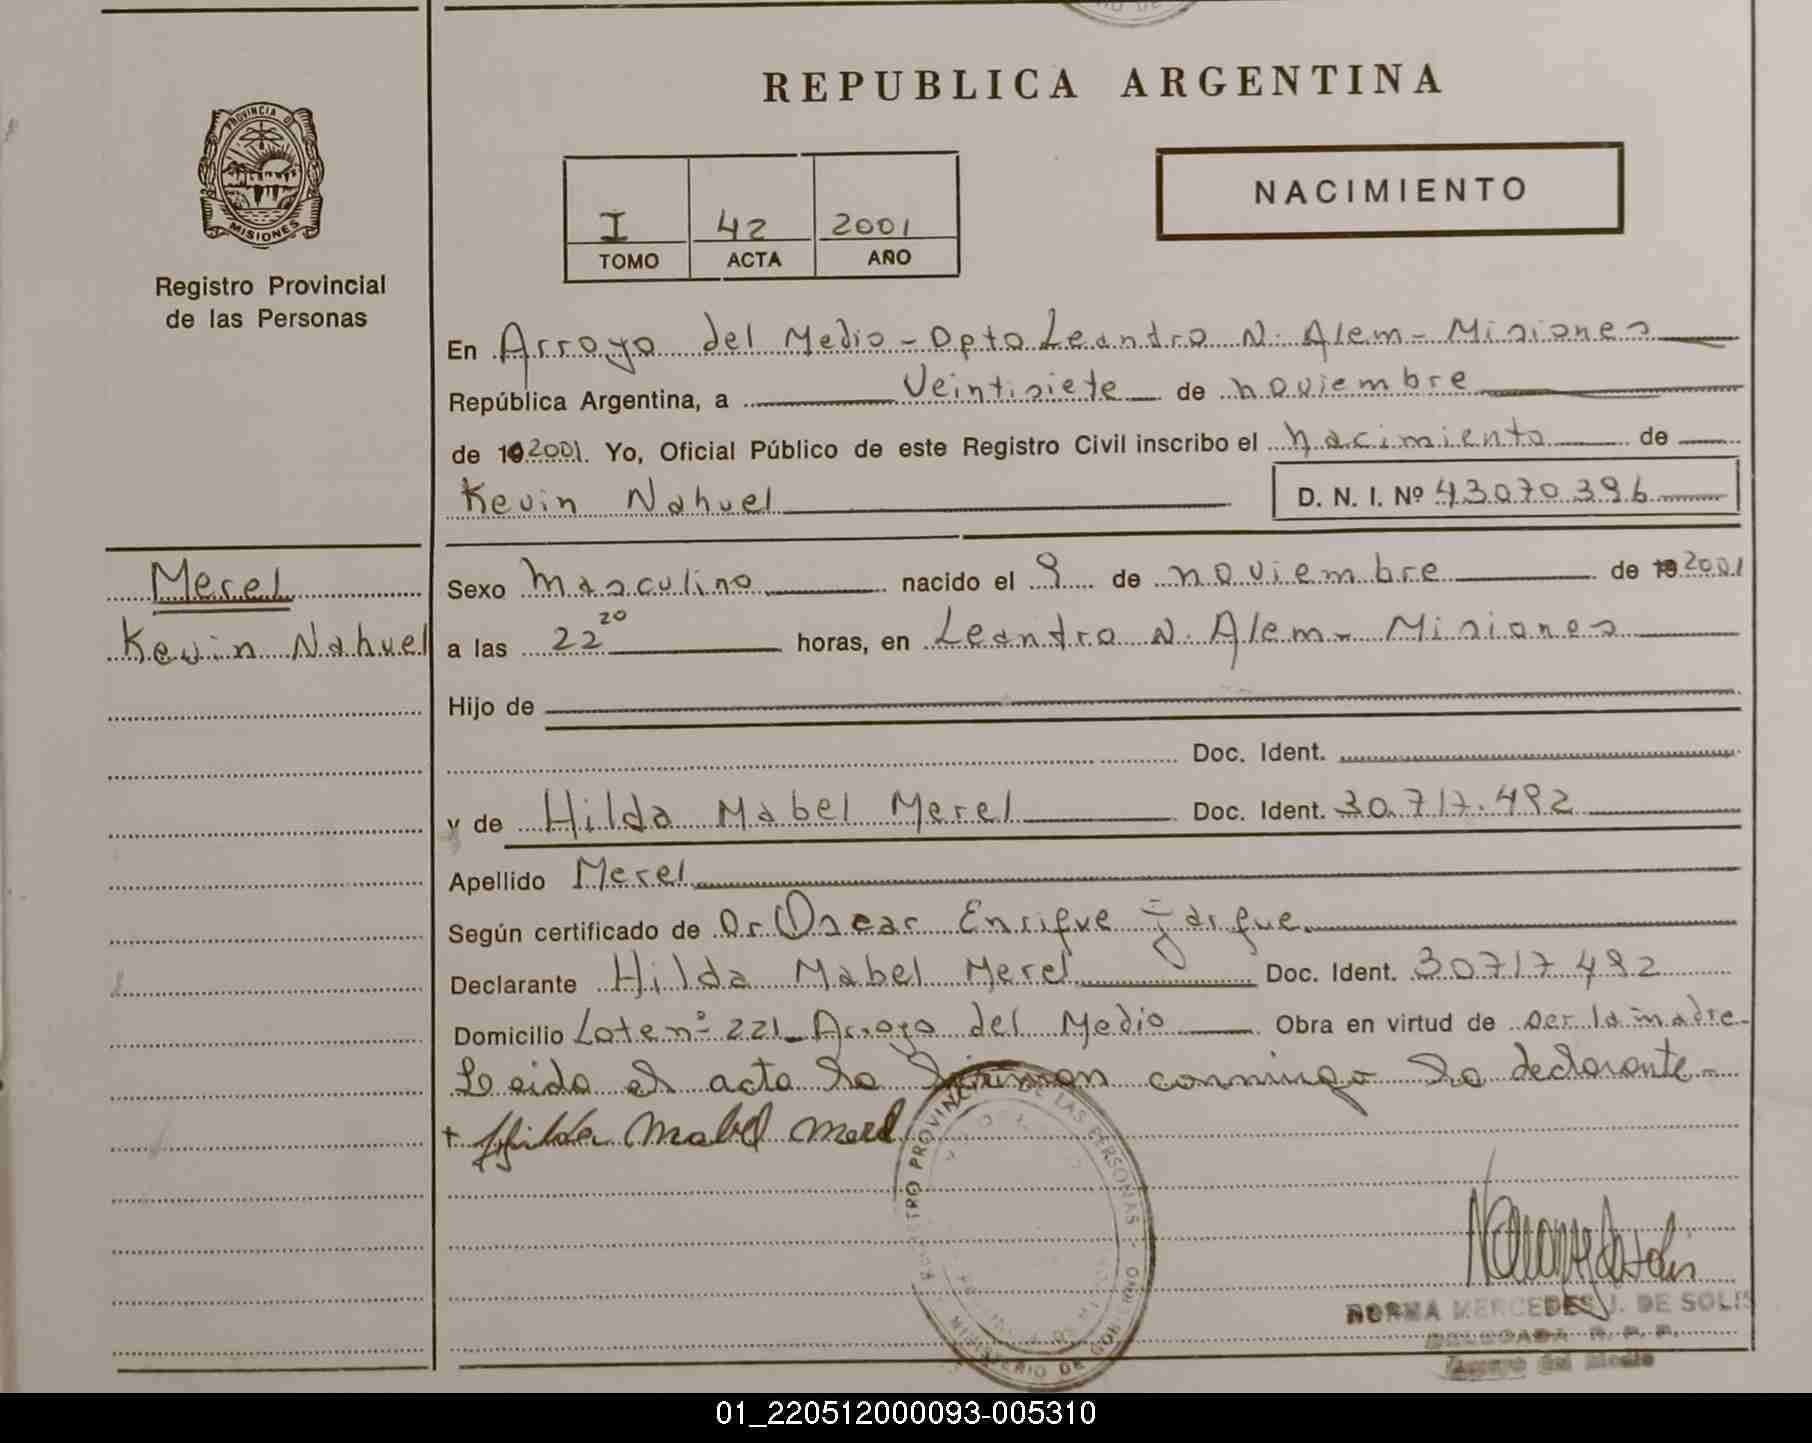 REPUBLICA ARGENTINA
PROVINCIA D
MISIONES
Registro Provincial
de las Personas
NACIMIENTO
I 42 2001
TOMO ACTA AÑO
En Arroyo del Medio - Dpto Leandro N. Alem - Misiones
República Argentina, a Veintisiete de noviembre
de 19 2001. Yo, Oficial Público de este Registro Civil inscribo el nacimiento de
Kevin Nahuel D. N. I. Nº 43070396
Merel
Kevin Nahuel
Sexo Masculino nacido el 9 de noviembre de 19 2001
a las 22 20 horas, en Leandro N. Alem - Misiones
Hijo de
Doc. Ident.
y de Hilda Mabel Merel Doc. Ident. 30.717.492
Apellido Merel
Según certificado de Dr Oscar Enrique Jarque
Declarante Hilda Mabel Merel Doc. Ident. 30717492
Domicilio Lote nº 221 - Arroyo del Medio Obra en virtud de ser la madre -
Leida el acta la firman conmigo la declarante -
+ Hilda Mabel Merel
MINISTERIO DE GOBIERNO
NORMA MERCEDES J. DE SOLIS
DELEGADA R. P. P.
Arroyo del Medio
01_220512000093-005310